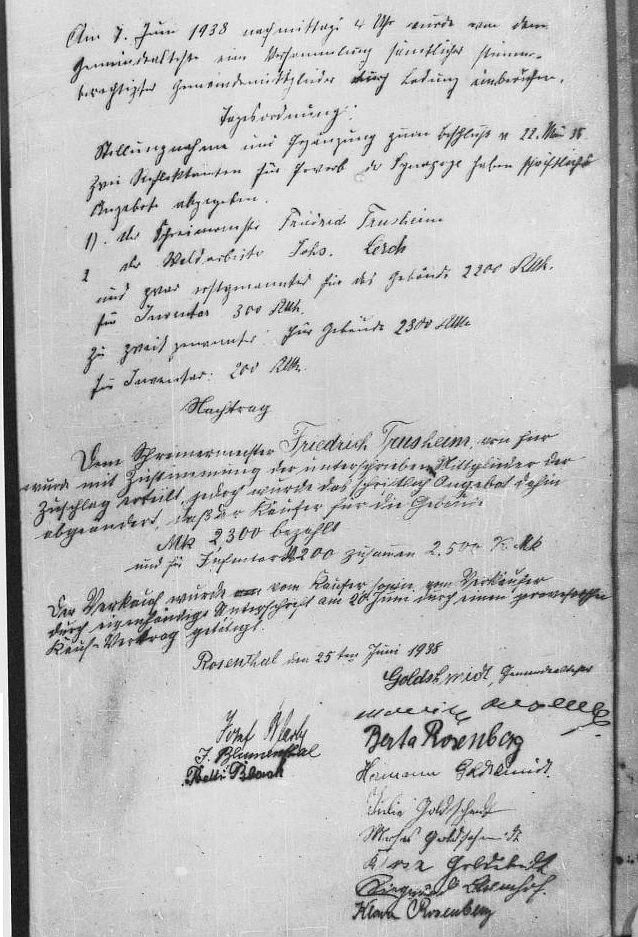 Am 7. Juni 1938 nachmittags 4 Uhr wurde von dem
Gemeindeältesten eine Versammlung sämtlicher stimm-
berechtigter Gemeindemitglieder durch Ladung einberufen.
Tagesordnung:
Stellungnahme und Ergänzung zum Beschluß v 22. Mai 38
Zwei Reflektanten für Erwerb der Synagoge haben schriftliche
Angebote abgegeben.
1). der Schreinermeister Friedrich Trusheim
2 der Waldarbeiter Johs. Lerch
und zwar erstgenannter für das Gebäude 2200 RMk.
für Inventar 300 RMk.
Zu zweit genannter: für Gebäude 2300 RMk
für Inventar: 200 RMk.
Nachtrag
Dem Schreinermeister Friedrich Trusheim, von hier
wurde mit Zustimmung der unterschrieben Mittglieder der
Zuschlag erteilt, jedoch wurde das schriftlich Angebot dahin
abgeändert, daß der Käufer für die Gebäude
Mk 2300 bezahlt
und für Inventar M 200 zusammen 2.500 R Mk
Der Verkauf wurde vom Käufer sowie vom Verkäufer
durch eigenhändige Unterschrift am 20 Juni durch einen
Kauf-Vertrag getätigt.
Rosenthal den 25ten Juni 1938
Goldschmidt, Gemeindeältester
Josef
J. Blumenthal
Betti
Berta Rosenberg
Hermann Goldschmidt
Julie Goldschmidt
Moses Goldschmidt
Klara Rosenberg